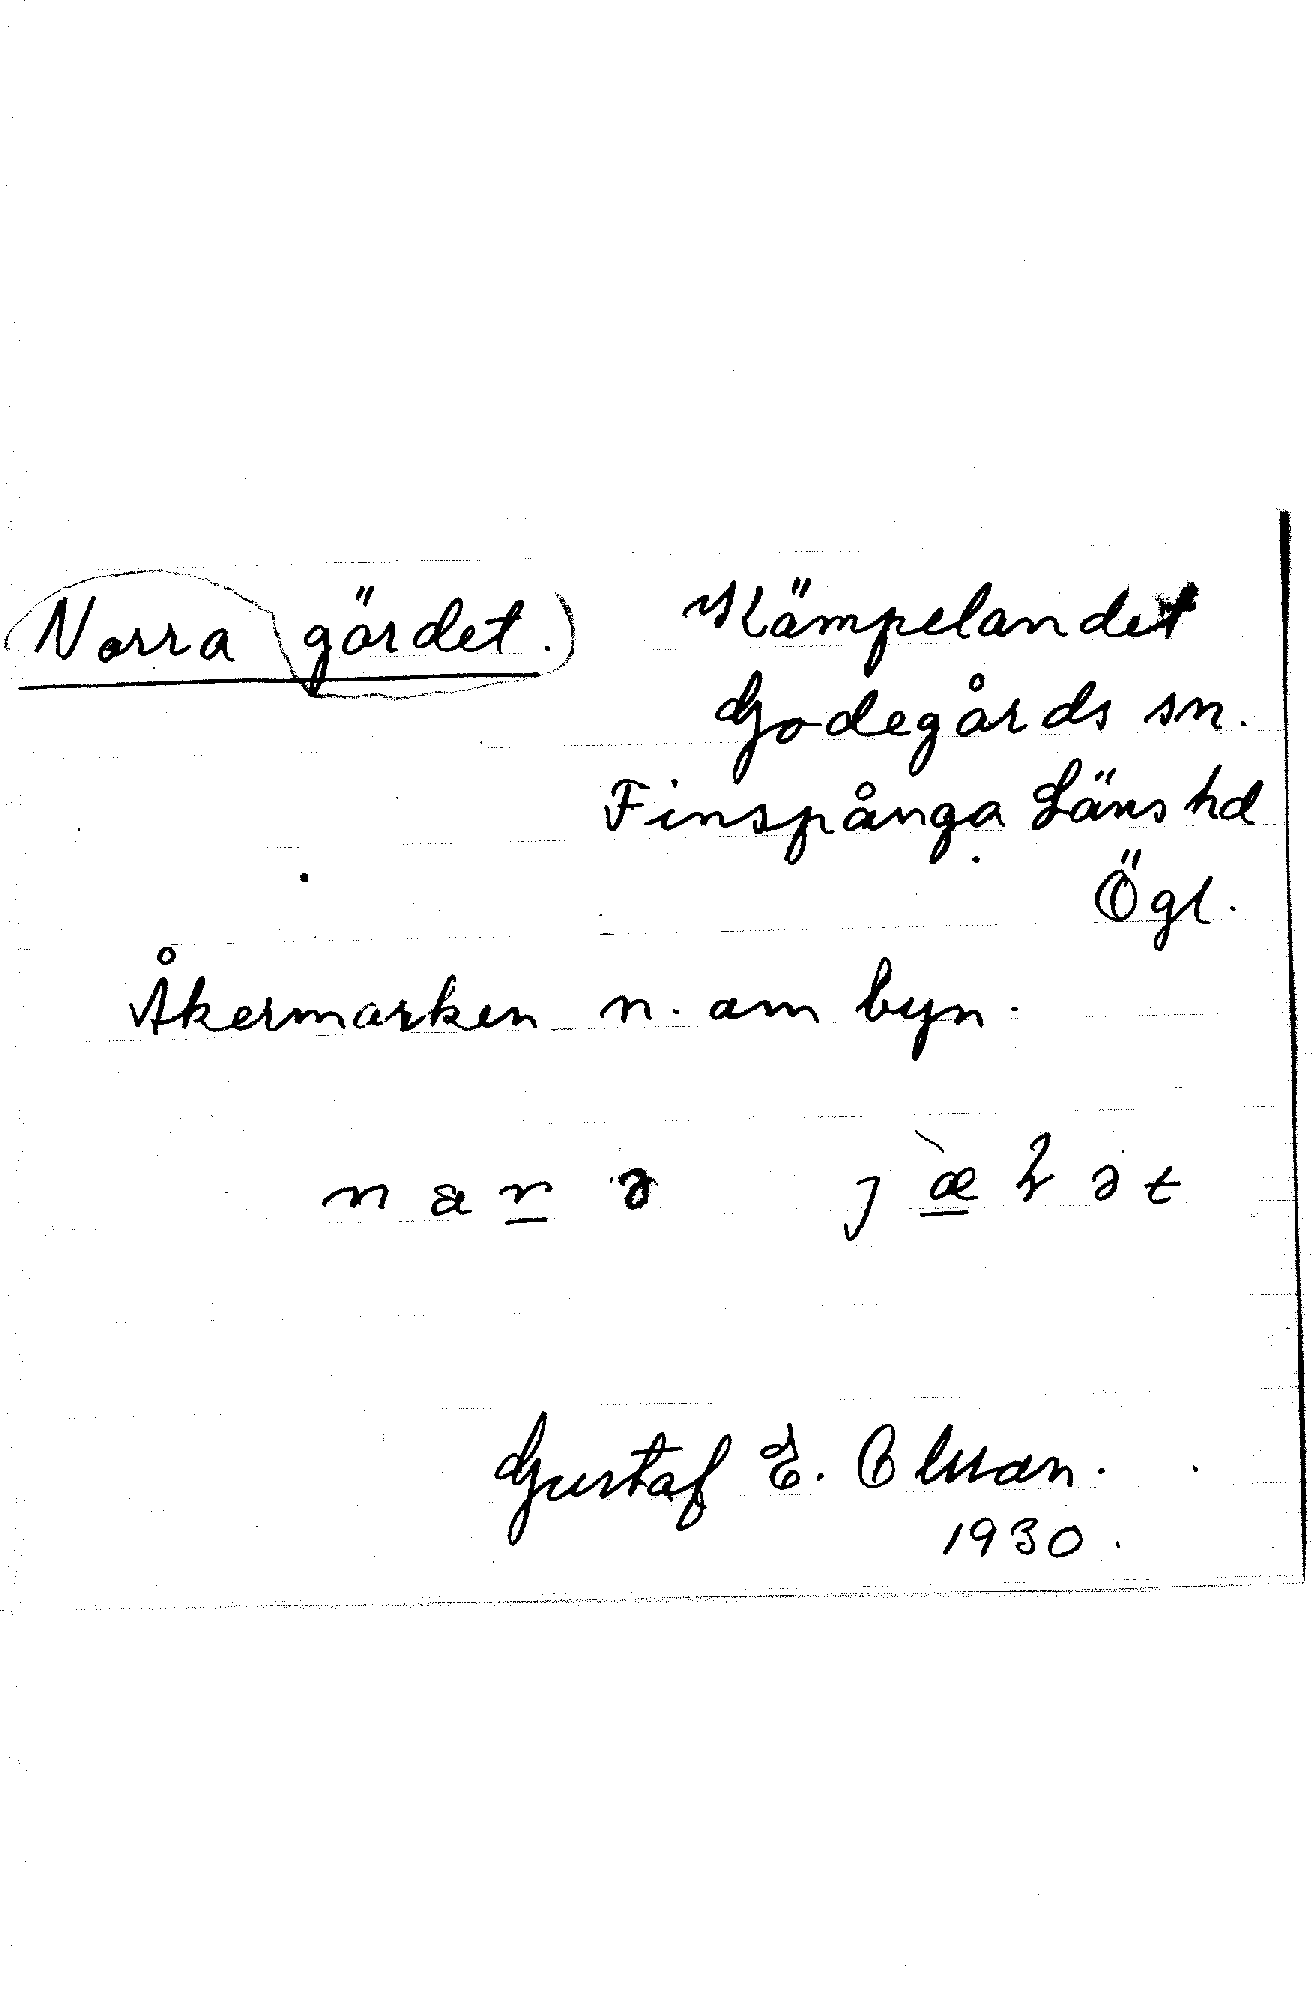 Norra gärdet.
Kämpelandet
Godegårds sn.
Finspånga Läns hd
Ögl.
Åkermarken n. om byn.
Gustaf E. Olsson.
1930.